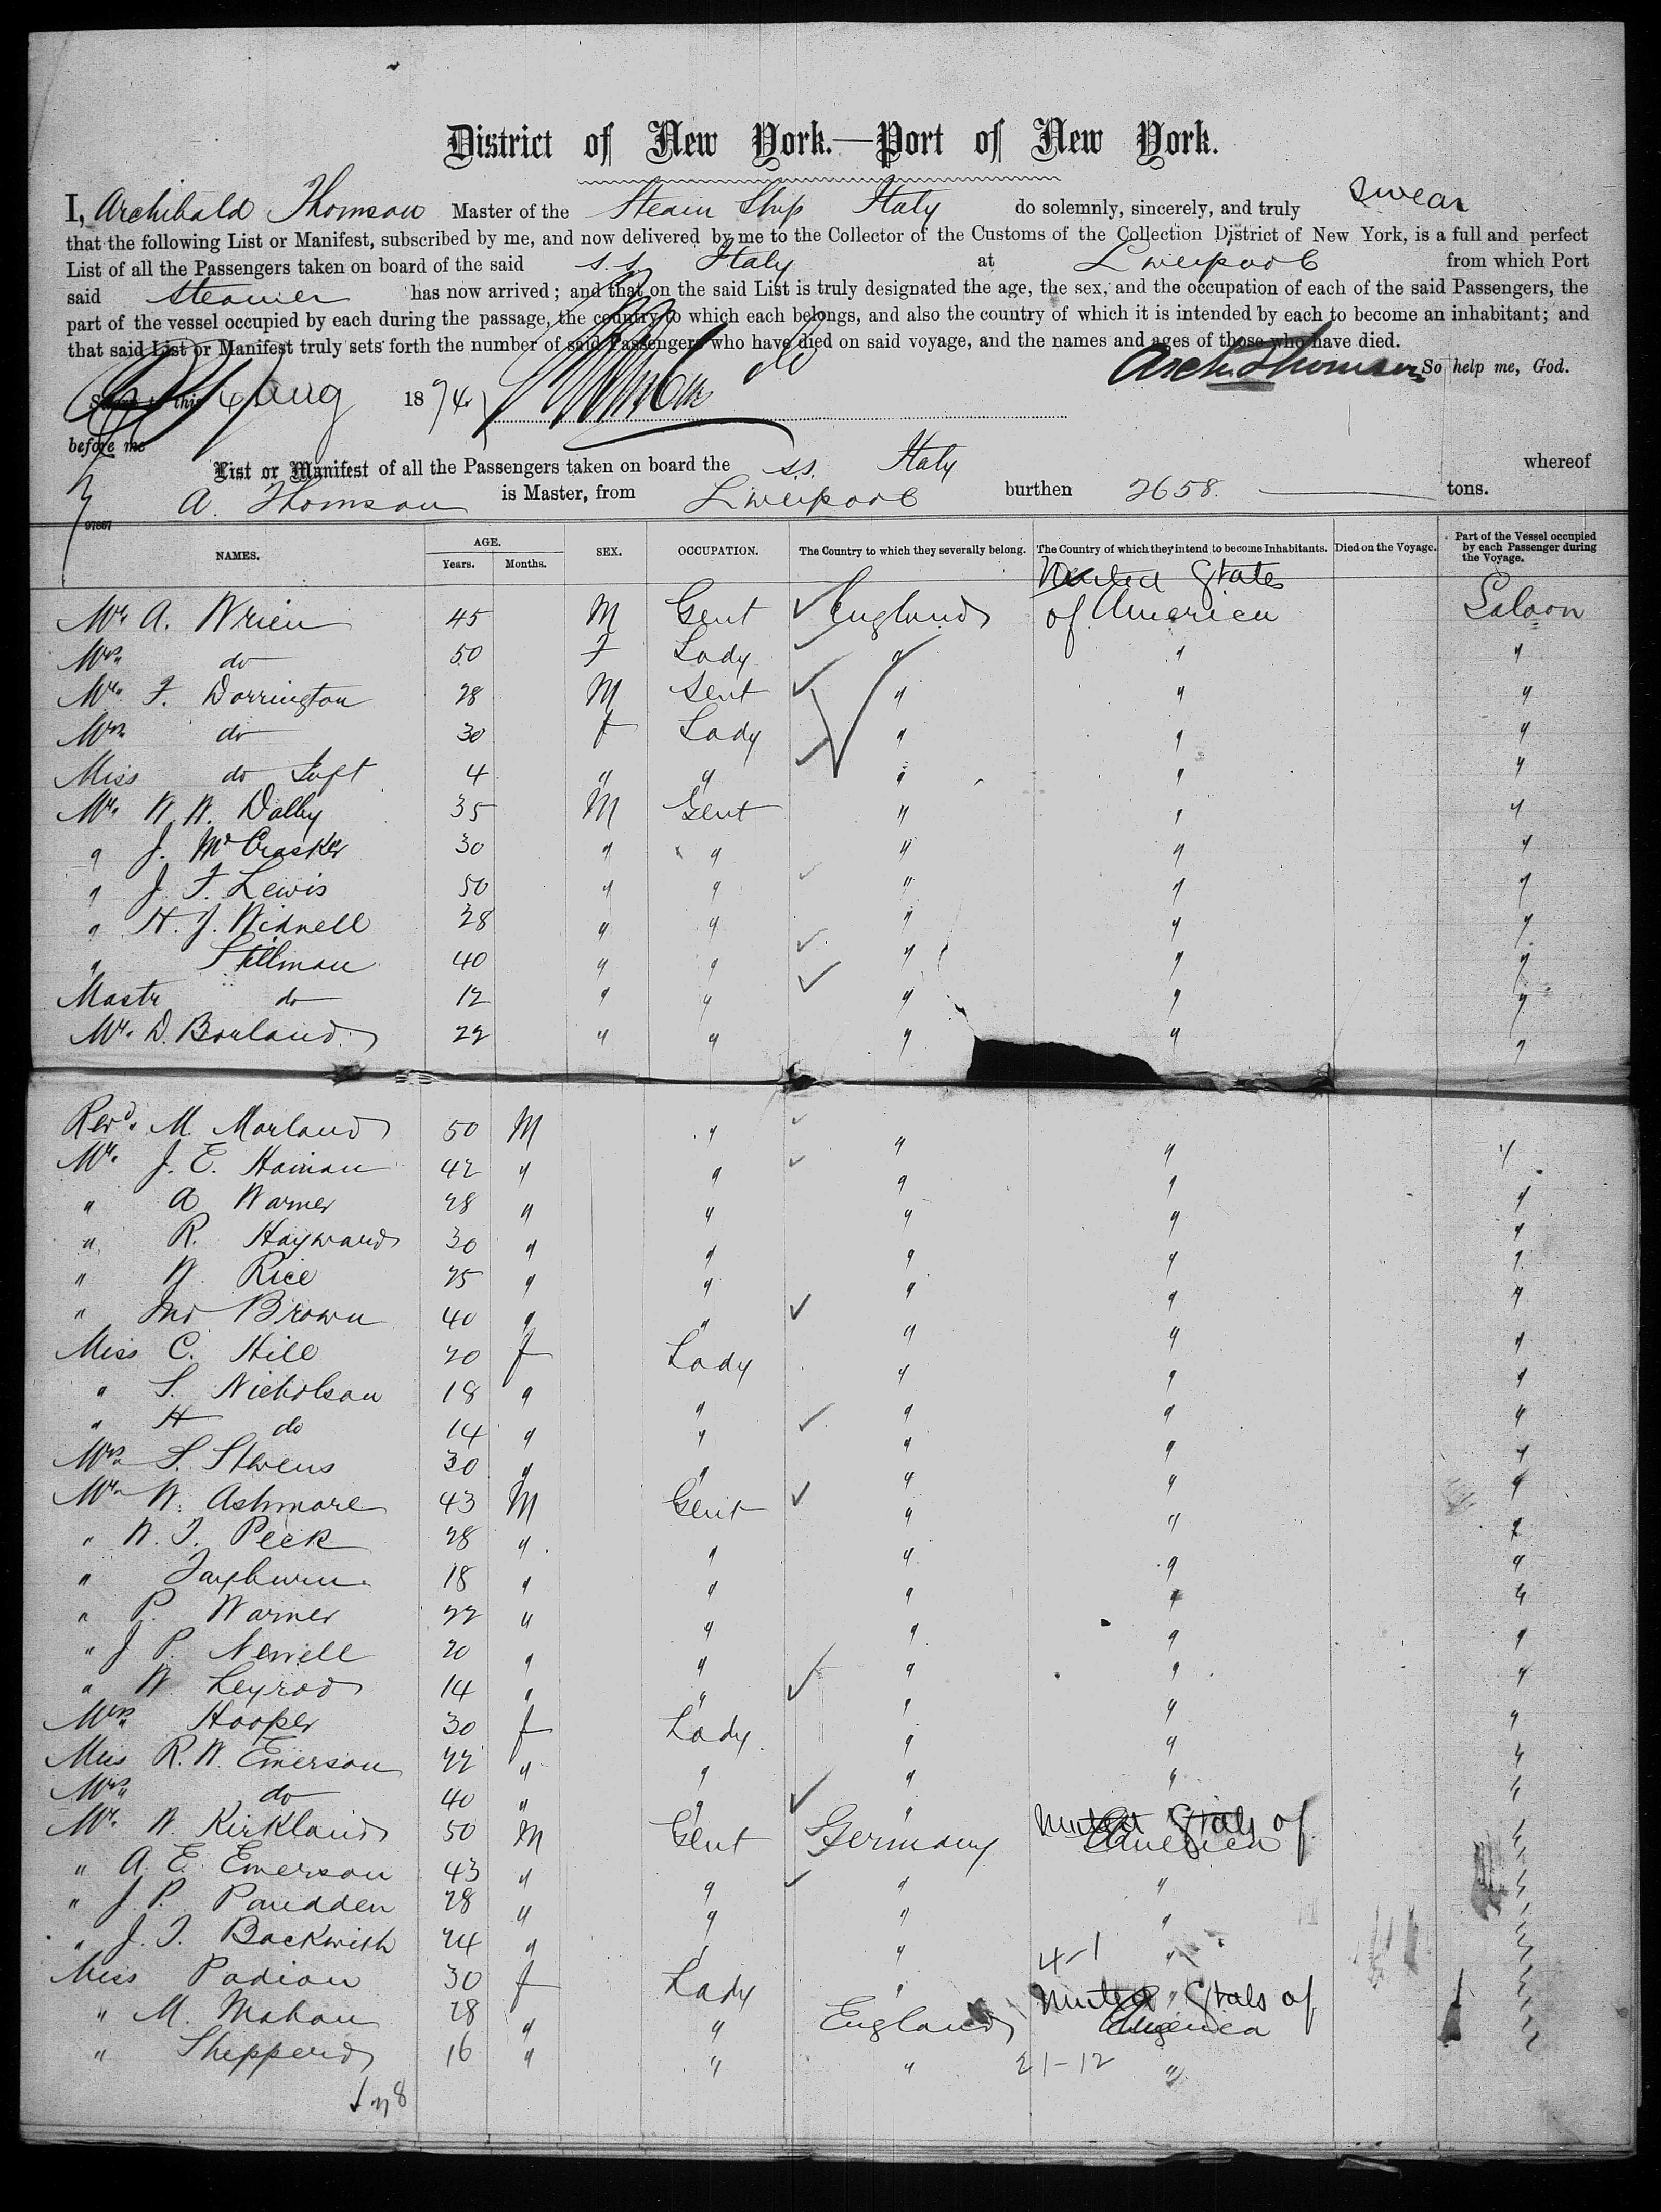 District of New York.—Port of New York.
I, Archibald Thomson Master of the Steam Ship Italy do solemnly, sincerely, and truly swear
that the following List or Manifest, subscribed by me, and now delivered by me to the Collector of the Customs of the Collection District of New York, is a full and perfect
List of all the Passengers taken on board of the said s.s. Italy at Liverpool from which Port
said Steamer has now arrived; and that on the said List is truly designated the age, the sex, and the occupation of each of the said Passengers, the
part of the vessel occupied by each during the passage, the country to which each belongs, and also the country of which it is intended by each to become an inhabitant; and
that said List or Manifest truly sets forth the number of said Passengers who have died on said voyage, and the names and ages of those who have died.
Arch. Thomson So help me, God.
Sworn to this Aug 1874
before me
List or Manifest of all the Passengers taken on board the s.s. Italy whereof
A. Thomson is Master, from Liverpool burthen 2658. tons.
97667
NAMES. AGE. Years. Months. SEX. OCCUPATION. The Country to which they severally belong. The Country of which they intend to become Inhabitants. Died on the Voyage. Part of the Vessel occupied by each Passenger during the Voyage.
United States
Mr. A. Wrien 45 M Gent England of America Saloon
Mrs. do 50 F Lady " " "
Mr. F. Dorrington 28 M Gent " " "
Mrs. do 30 f Lady " " "
Miss do Inft 4 " " " " "
Mr. W. W. Dalby 35 M Gent " " "
" J. McCrasker 30 " " " " "
" J. F. Lewis 50 " " " " "
" H. J. Widnell 28 " " " " "
" Stillman 40 " " " " "
Mastr do 12 " " " " "
Mr. D. Borland 22 " " " " "
Revd. M. Morland 50 M " " " "
Mr. J. E. Hainan 42 " " " " "
" A Warner 28 " " " " "
" R. Hayward 30 " " " " "
" W. Rice 25 " " " " "
" Jno Brown 40 " " " " "
Miss C. Hill 20 f Lady " " "
" S. Nicholson 18 " " " " "
" H do 14 " " " " "
Mrs. S. Stevens 30 " " " " "
Mr. W. Ashmore 43 M Gent " " "
" W. T. Peck 28 " " " " "
" 18 " " " " "
" P. Warner 22 " " " " "
" J P. Newell 20 " " " " "
" W Leyrod 14 " " " " "
Mrs. Hooper 30 f Lady " " "
Miss R. W. Emerson 22 " " " " "
Mrs. do 40 " " " "
Mr. W. Kirkland 50 M Gent Germany United States of America "
" A. E. Emerson 43 " " " " "
" J. P. Paudden 28 " " " " "
" J. T. Backwith 24 " " " 4-1 " "
Miss Padion 30 f Lady " "
United States of
" M. Mahan 28 " " England America "
" Shepperd 16 " " " 21-12 " "